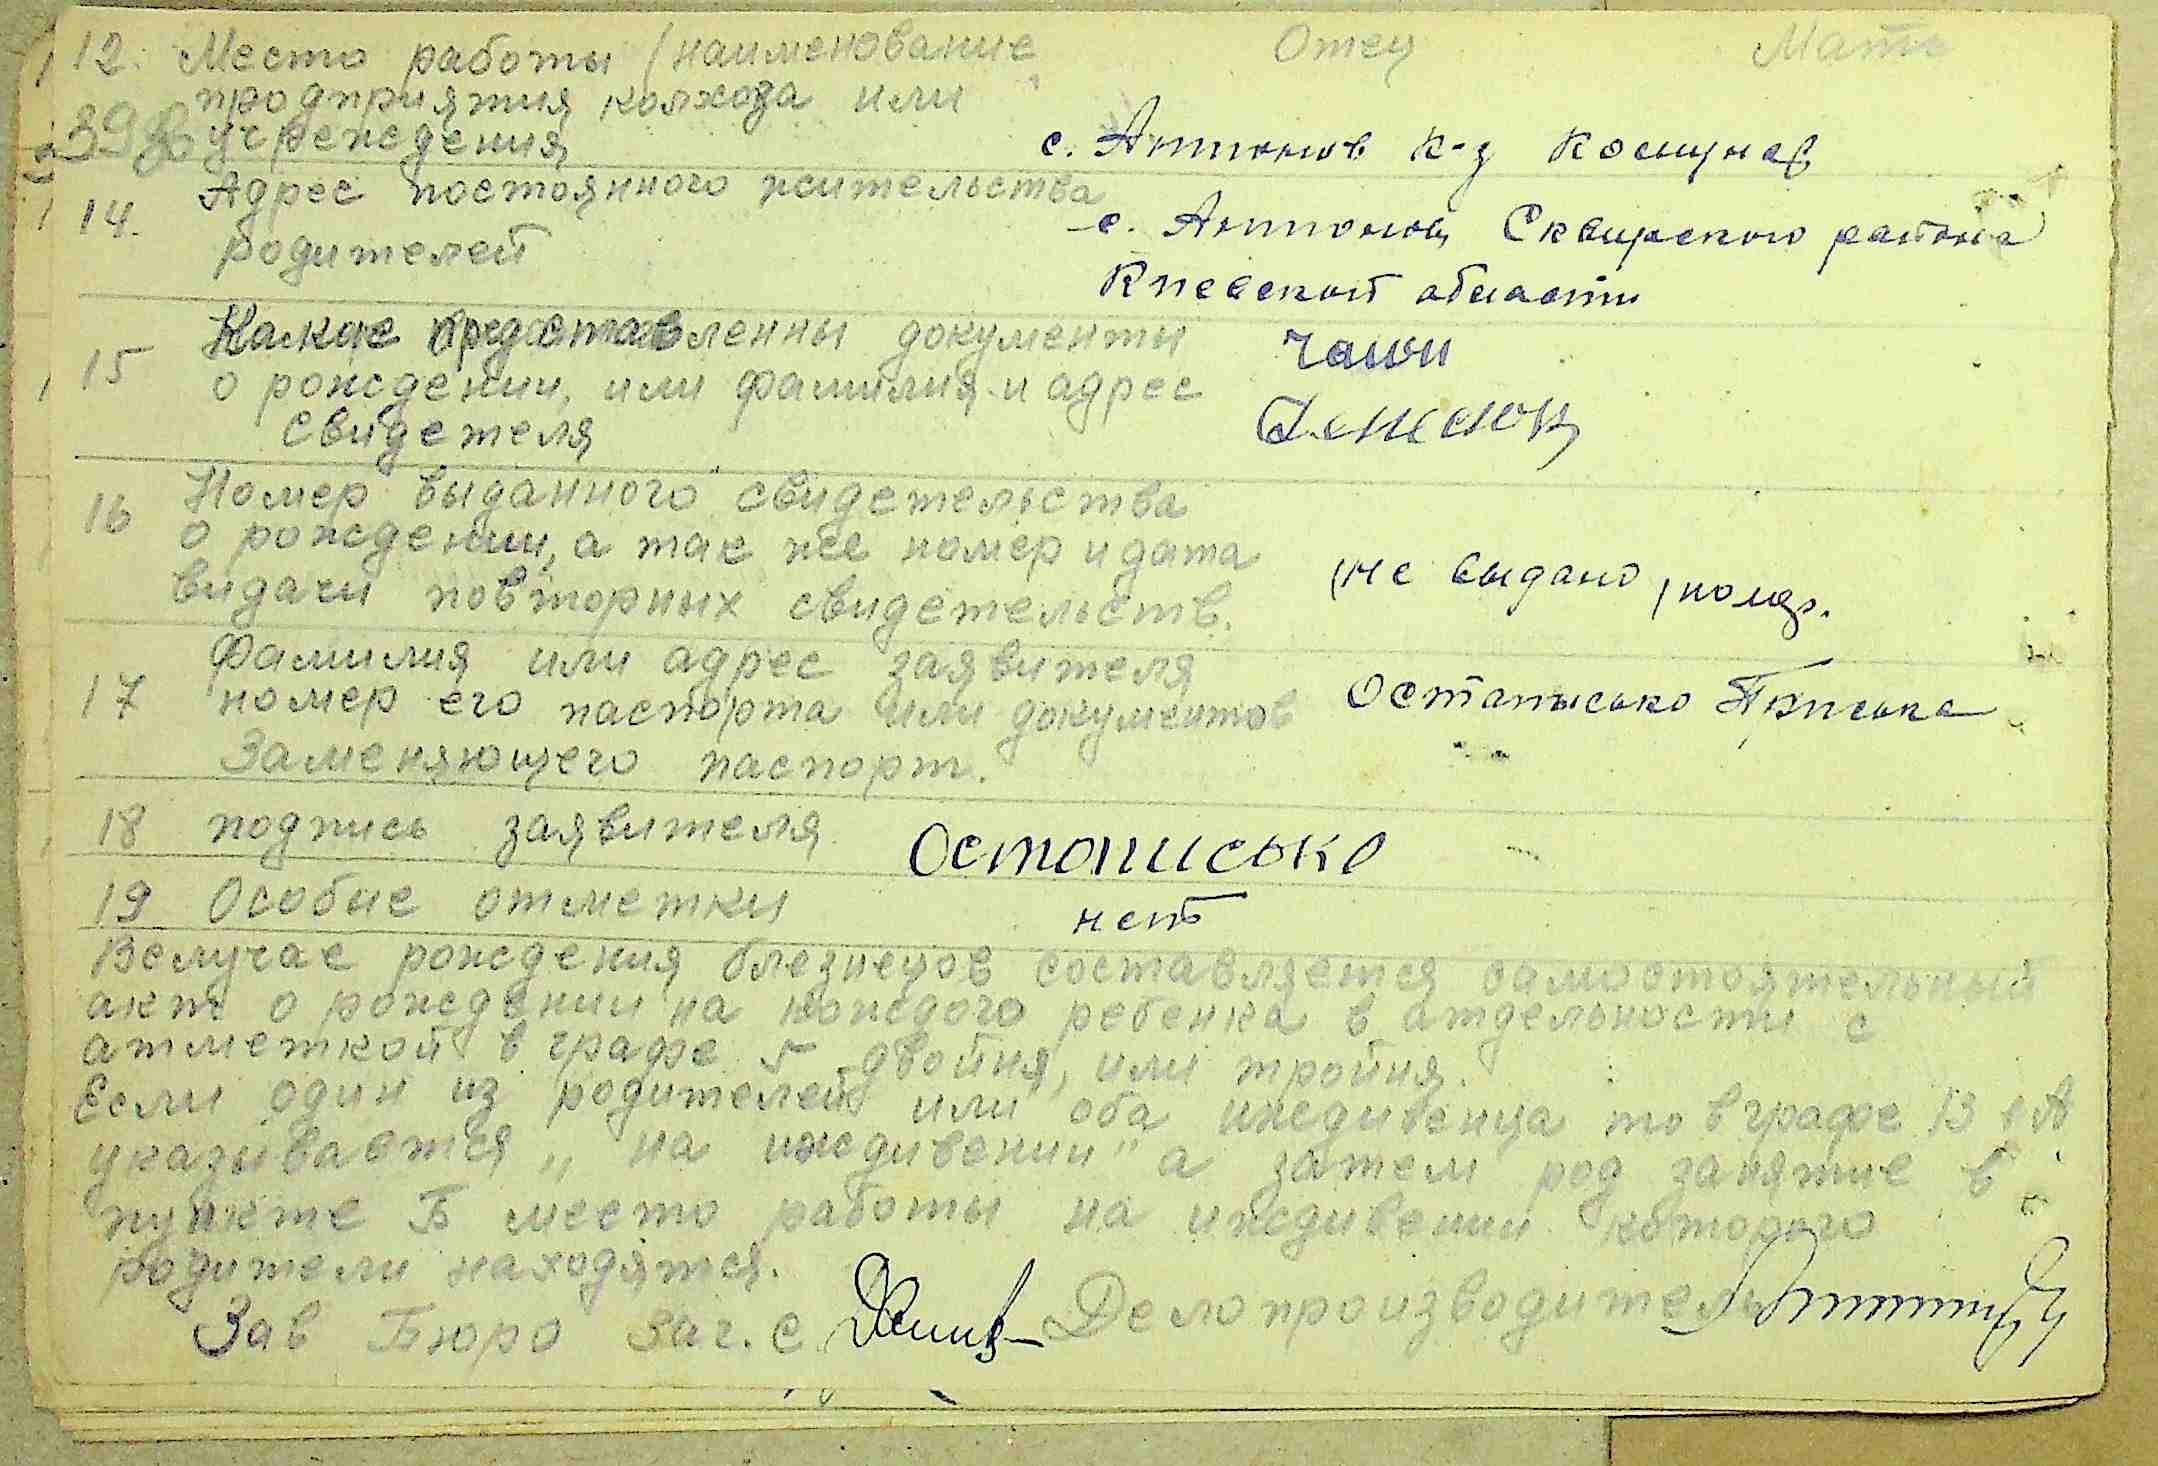 12. Место работы (наименование Отец Мать
продприятия колхоза или
учреждения с. Антонов к-з
14. Адрес постоянного жительства
родителей с. Антонов, Сквирского района
Киевской области
15 Какие представленны документы
о рождении, или фамилия и адрес
свидетеля
16 Номер выданного свидетельства
о рождении, а так же номер и дата
видачи повторных свидетельств. не выдано
17 Фамилия или адрес заявителя
номер его паспорта или документов
Заменяющего паспорт.
18 подпись заявителя Остописько
19 Особие отметки нет
Вслучае рождения блезнецов составляется самостоятельный
акт о рождении на кождого ребенка в атдельности с
атметкой в графе 5 двойня, или тройня.
Если один из родителей или оба иждивенца то в графе 13 А
указывается „на иждивении" а затем род занятие в
пункте Б место работы на иждивении которого
родители находятся.
Зав Бюро заг. с Делопроизводитель